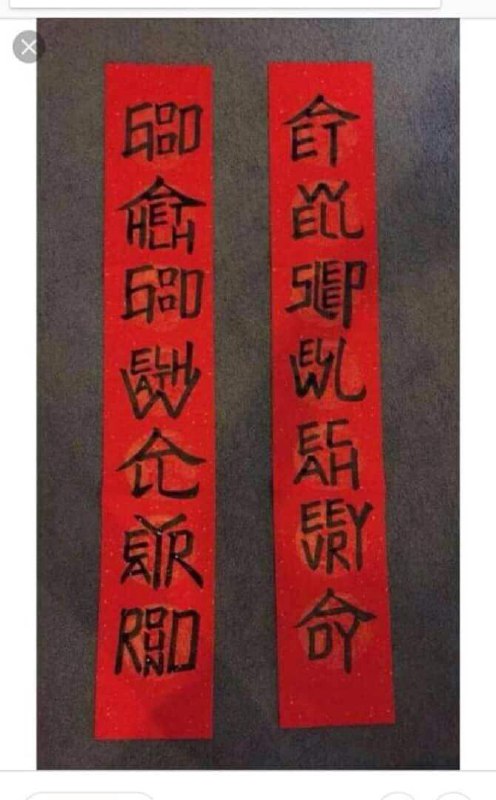 GOOD HEALTH GOOD WEALTH ALL YEAR ROUND
EAT WELL SLEEP WELL EACH EVERY DAY